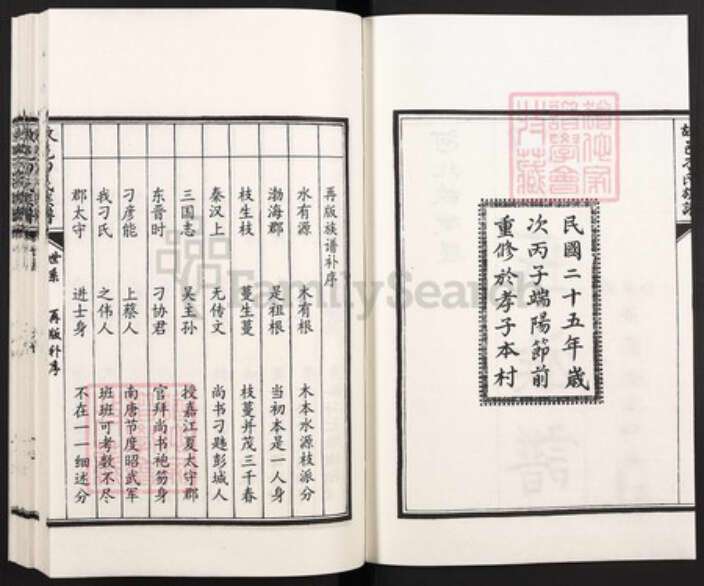 猶他家
譜學會
特藏
民國二十五年歲
次丙子端陽節前
重修於孝子本村
再版族谱补序
水有源 木有根 木本水源枝派分
渤海郡 是祖根 当初本是一人身
枝生枝 蔓生蔓 枝蔓并茂三千春
秦汉上 无传文 尚书刁韪彭城人
三国志 吴主孙 授嘉江夏太守郡
东晋时 刁协君 官拜尚书袍笏身
刁彦能 上蔡人 南唐节度昭武军
我刁氏 之伟人 班班可考数不尽
郡太守 进士身 不在一一细述分
世系 再版补序
FamilySearch